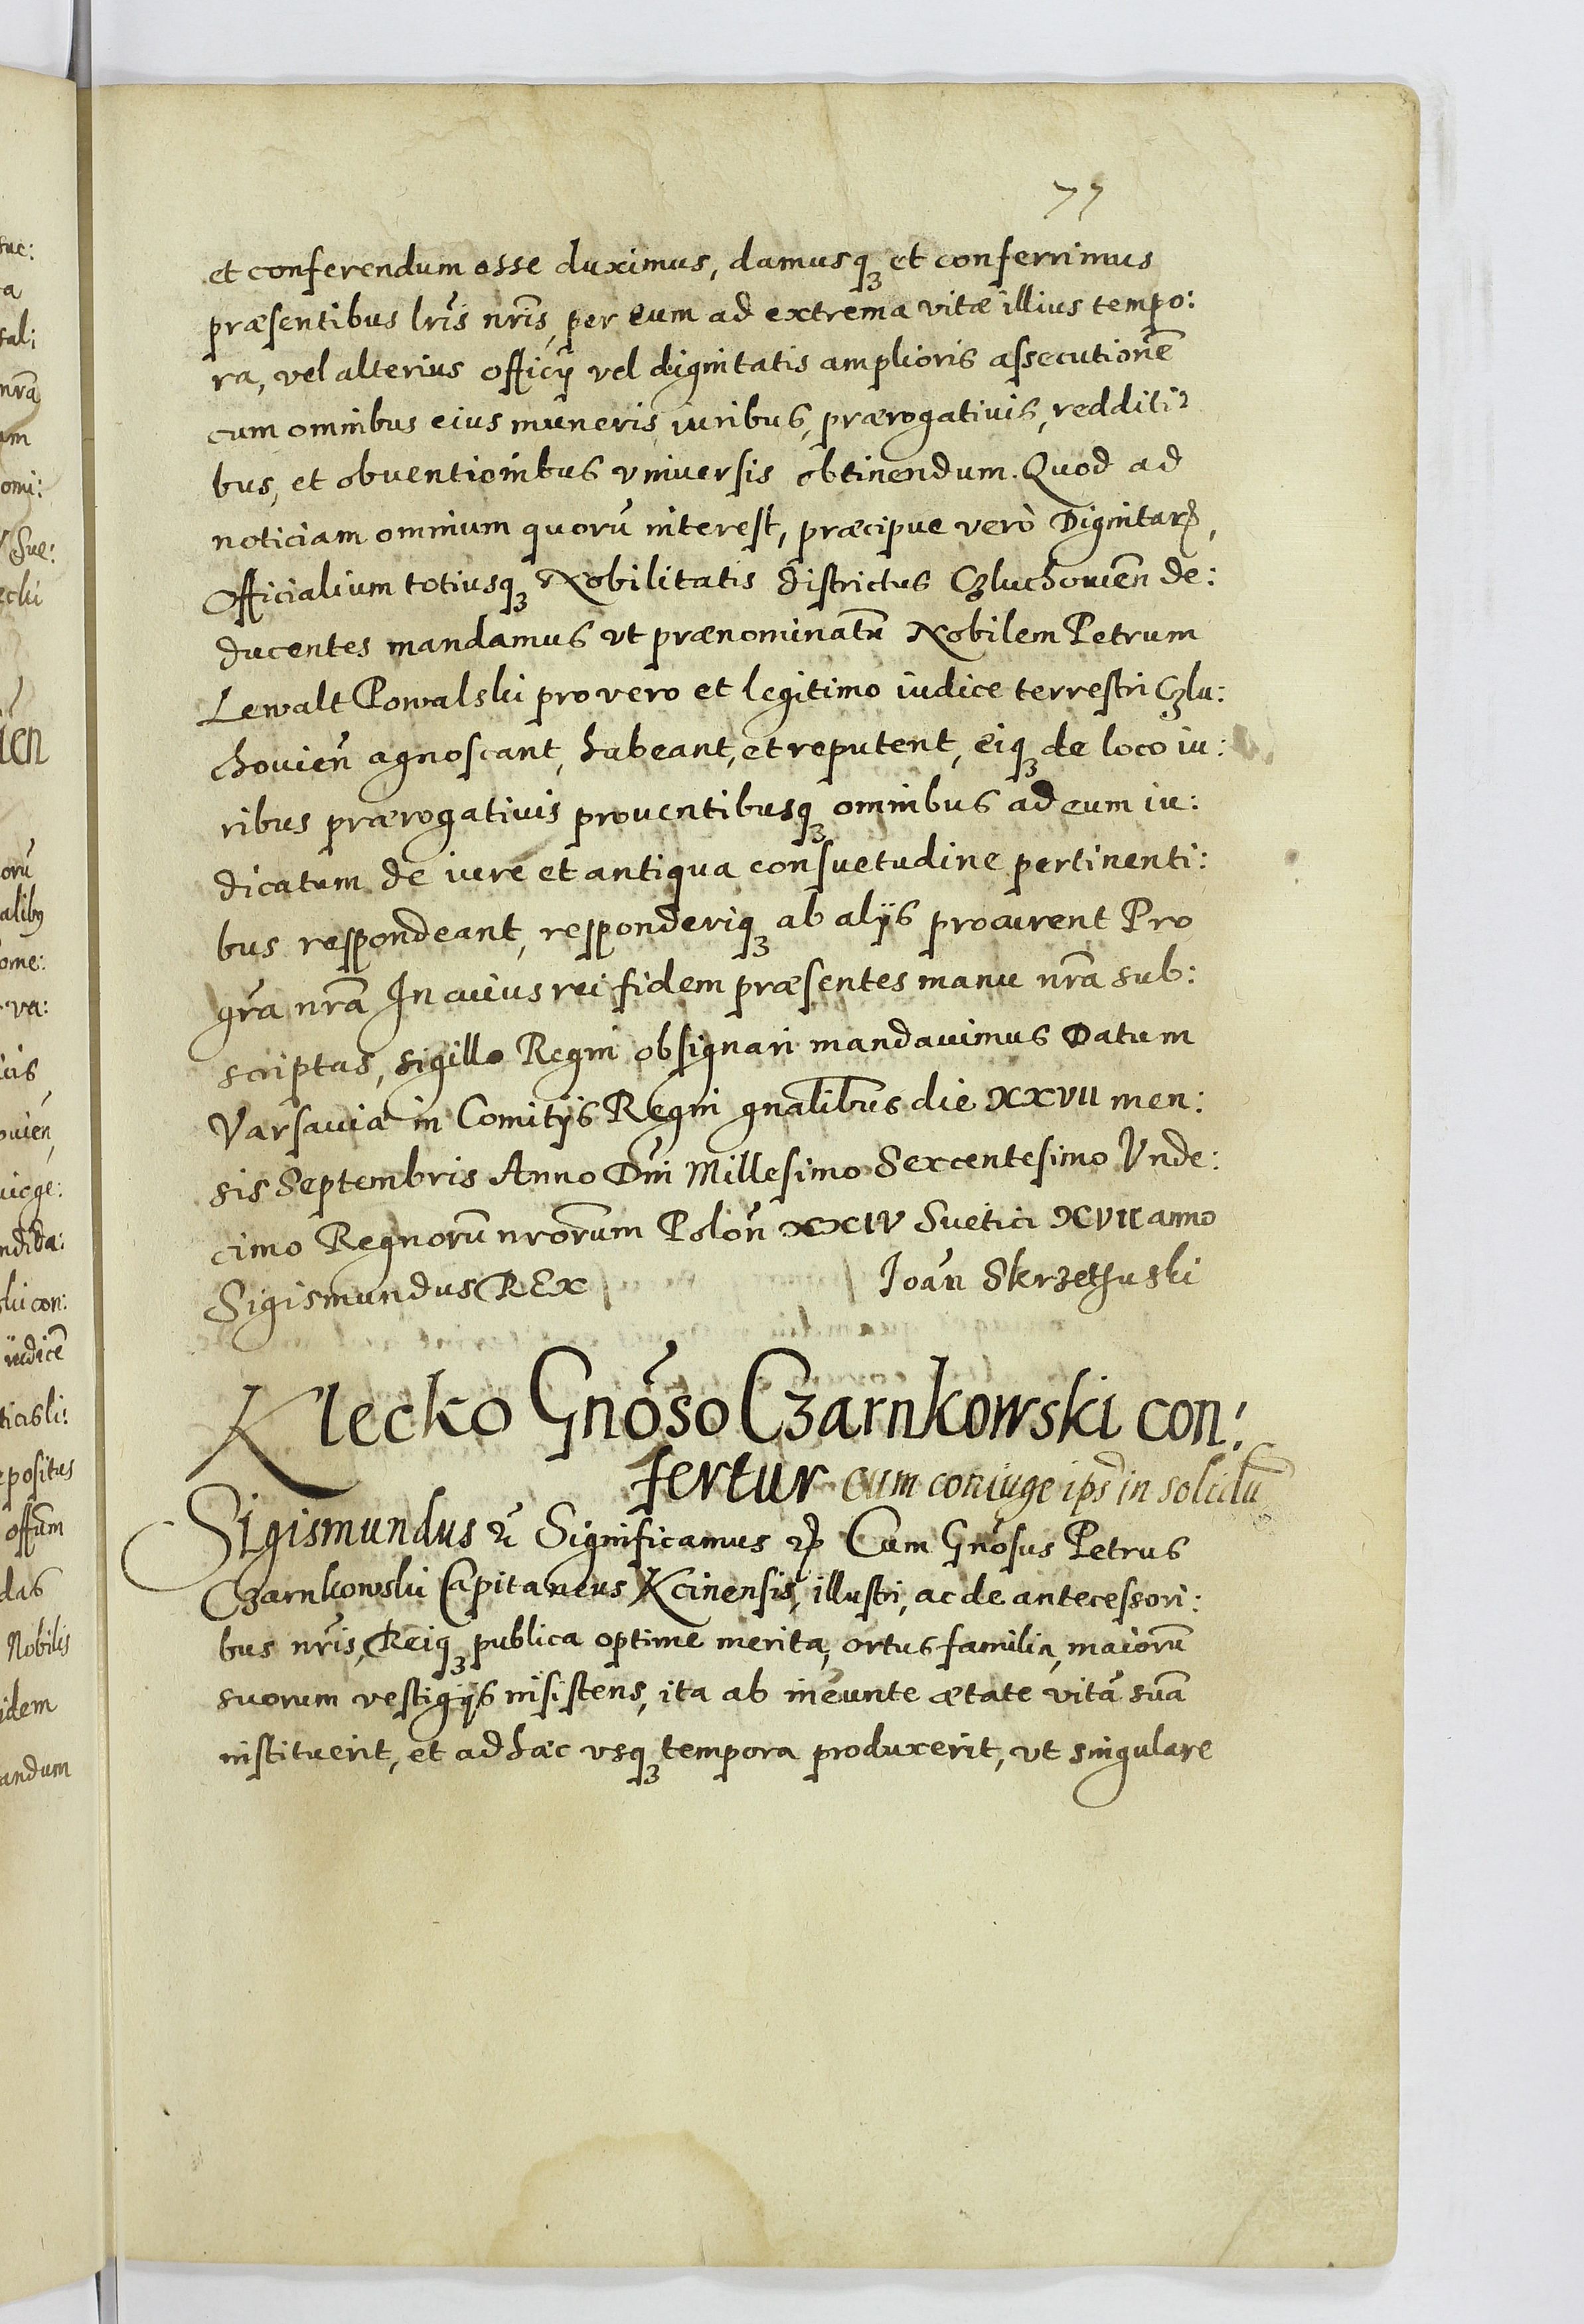 77
et conferendum esse duximus, damusq₃ et conferrimus
præsentibus lr̃is nr̃is, per eum ad extrema vitæ illius tempo:
ra, vel alterius officij vel dignitatis amplioris assecutionẽ
cum omnibus eius muneris iuribus, prærogativis, redditi:
bus, et obventionibus vniversis obtinendum. Quod ad
noticiam omnium quorũ interest, præcipue verò Dignitar̃,
Officialium totiusq₃ Nobilitatis districtus Czluchovien̄ de:
ducentes mandamus vt prænominatũ Nobilem Petrum
Lewalt Powalski pro vero et legitimo iudice terrestri Czlu:
chovien̄ agnoscant, habeant, et reputent, eiq₃ de loco iu:
ribus prærogativis proventibusq₃ omnibus ad eum iu:
dicatum de iure et antiqua consuetudine pertinenti:
bus respondeant, responderiq₃ ab alijs procurent Pro
gr̃a nr̃a In cuius rei fidem præsentes manu nr̃a sub:
scriptas, sigillo Regni obsignari mandavimus Datum
Varsaviæ in Comitijs Regni gn̄alibus die XXVII men:
sis Septembris Anno Dn̄i Millesimo Sexcentesimo Vnde:
cimo Regnorũ nrõrum Polon̄ XXIV Suetici XVII anno
Sigismundus REx Ioan̄ Skrzetuski
Klecko Gnõso Czarnkowski con:
fertur cum coniuge ips̄ in solidũ
Sigismundus &c̃ Significamus &c̃ Cum Gnõsus Petrus
Czarnkowski Capitaneus Kcinensis, illustri, ac de antecessori:
bus nr̃is, Reiq₃ publica optime merita, ortus familia, maiorũ
suorum vestigijs insistens, ita ab ineunte ætate vitã suã
instituerit, et ad hæc vsq₃ tempora produxerit, vt singulare